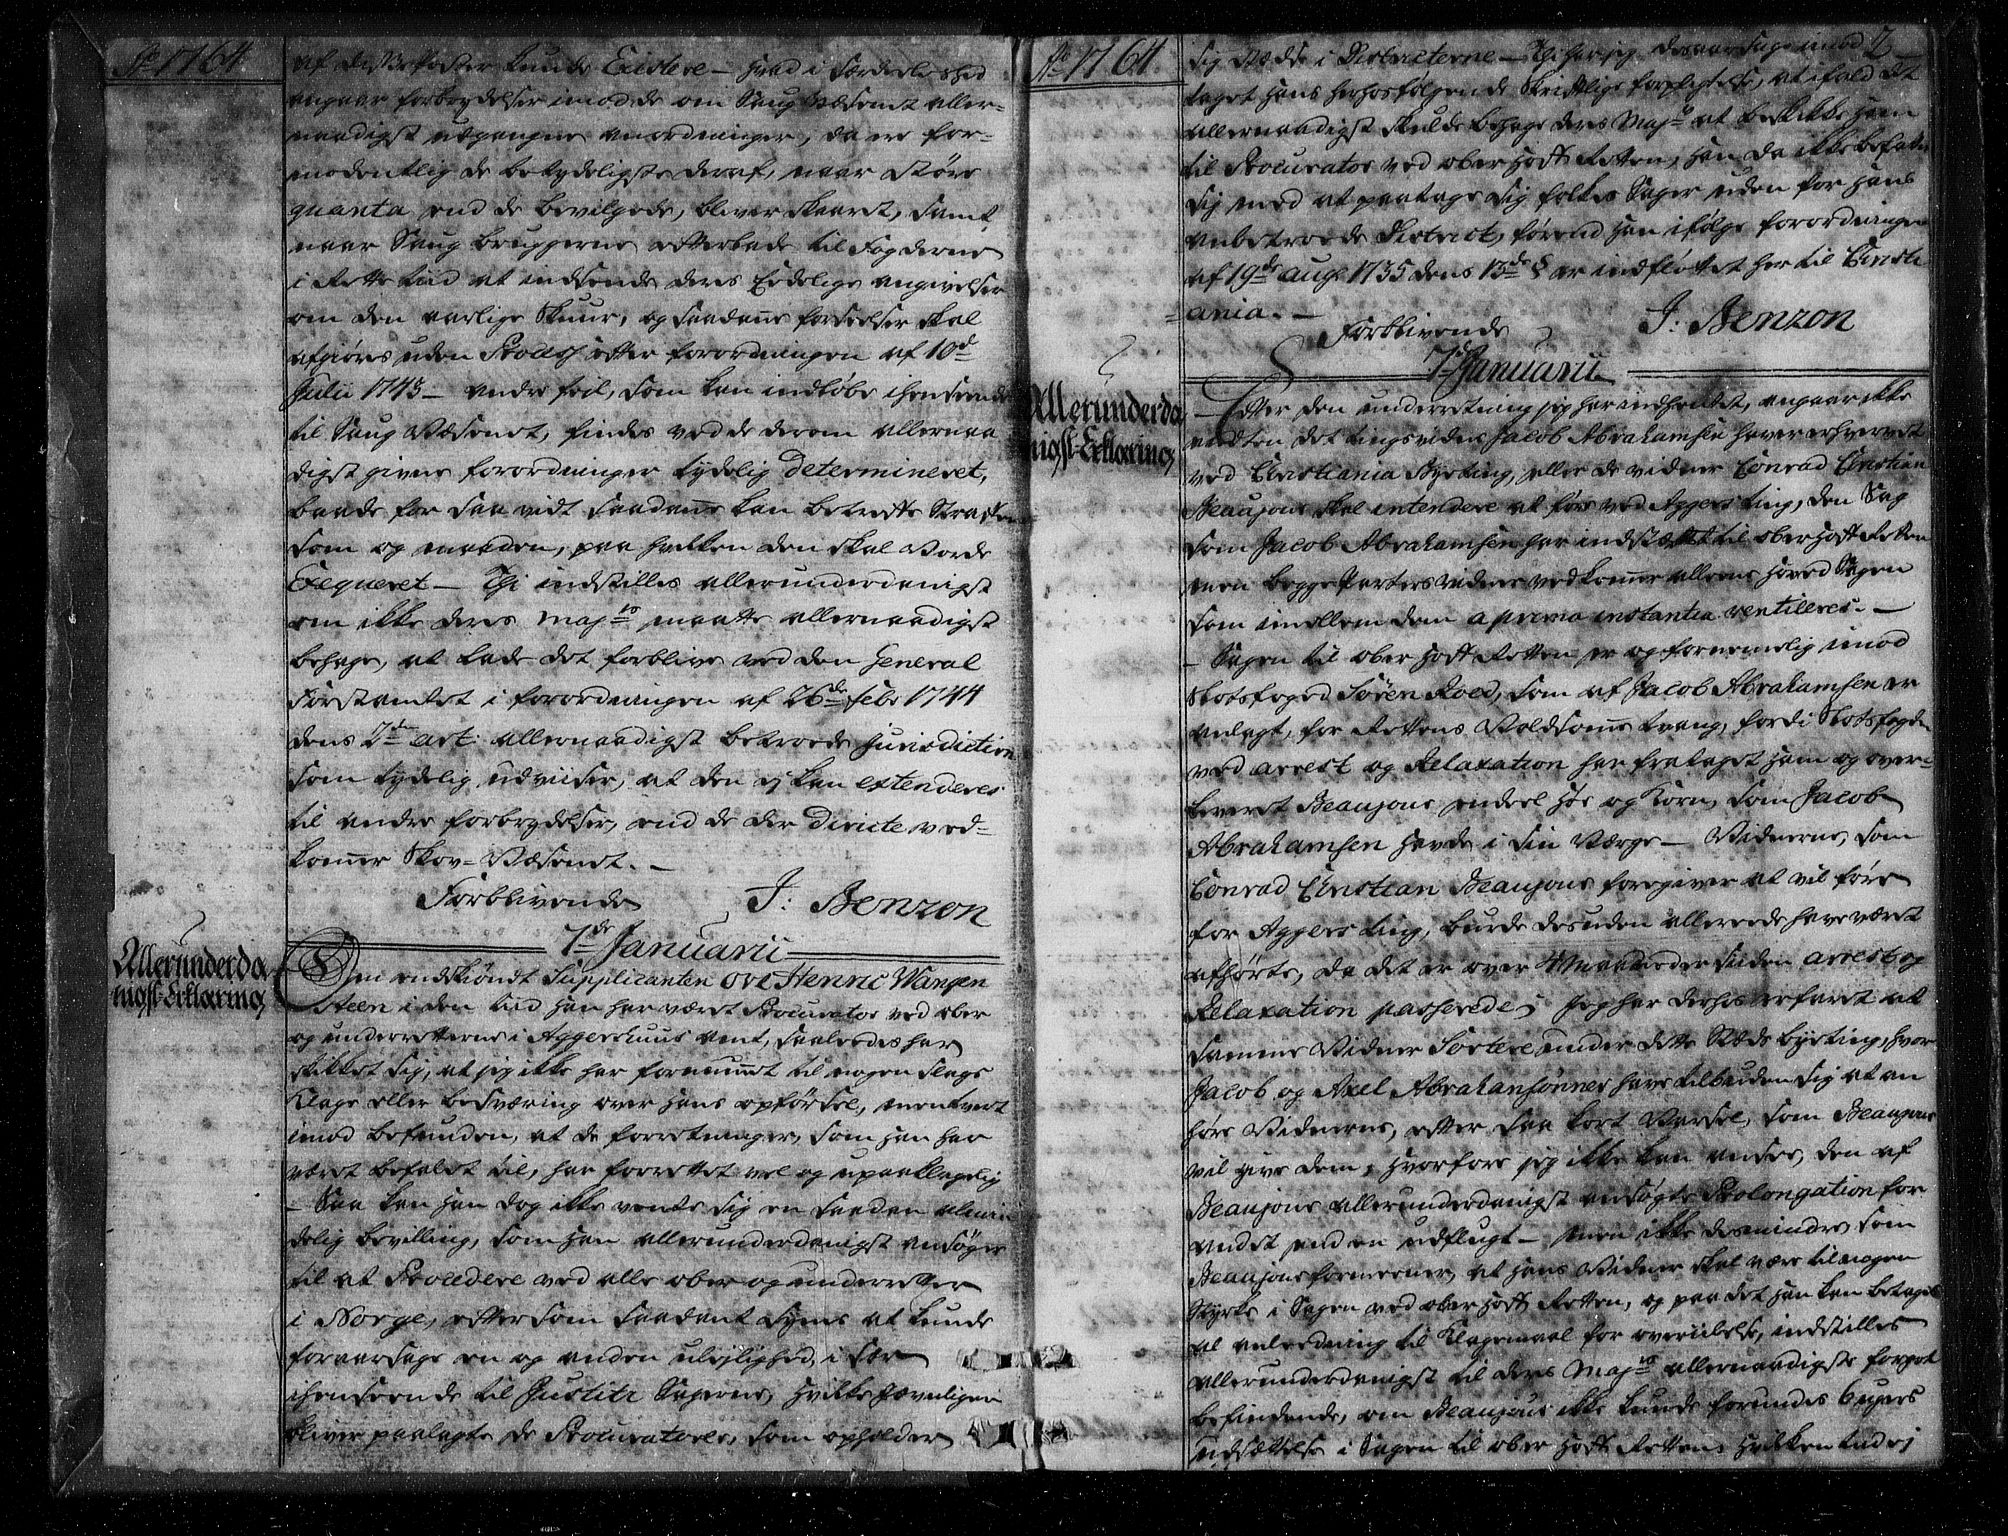 Aō 1764
af disse Poster kunde Existere – hvad i særdeleshed
angaar forbrydelser imod de om Saug Væsenet aller-
naadigst udgangne anordninger, da ere for-
modentlig de betydeligste deraf, naar större
quanta end de bevilgede, bliver skaaret, samt
naar Saug bruggerne efterlade til Fogderne
i rette tiid at indsende deres Eedelige angivelser
om den aarlige Skuur, og saadanne forseelser skal
afgiøres uden Process efter forordningen af 10de
Julii 1743 – andre feil, som kan indløbe i henseende
til Saug Væsenet, findes ved de derom allernaa
digst givne forordninger tydelig determineret,
baade for saa vidt saadant kan betreffe Straffen
som og maaden, paa hvilken den skal Vorde
Exequeret – Thi indstilles allerunderdanigst
om ikke Deres Majts maatte allernaadigst
behage, at lade det forblive ved den General
Forstamtet i forordningen af 26de Febr 1744
dens 7de art: allernaadigst betroede Jurisdiction
som tydelig udviiser, at den ej kan extenderes
til andre forbrydelser, end de der directe ved-
kommer Skov-Væsenet. –
Forblivende J: Benzon
7de Januarii
Allerunderda
nigst Erklæring
Om endskiöndt Supplicanten Ove Henric Wangen
steen i den tiid han har været Procurator ved ober
og underretterne i Aggershuus amt, saaledes har
skikket sig, at jeg ikke har fornummet til nogen slags
Klage eller besværing over hans opförsel, men tvert
imod befunden, at de forretninger, som han har
været befalet til, har forrettet vel og upaaklagelig
– Saa kan han dog ikke vente sig en saadan almin
delig bevilling, som han allerunderdanigst ansøger
til at Procedere ved alle ober og underretter
i Norge, eftersom saadant synes at kunde
foraarsage en og anden ulejlighed, i sær
i henseende til Justitz Sagerne, hvilke jævnligen
bliver paalagte de Procuratorer, som opholder
Aō 1764
2
sig stædse i Districterne – Thi har jeg desaarsage imod
taget hans herhosfølgende skriftlige forpligtelse, at ifald det
allernaadigst skulde behage Deres Majts at beskikke ham
til Procurator ved ober Hoff Retten, han da ikke befatter
sig med at paatage sig folkes Sager uden for hans
anbetroede District, førend han ifølge forordningen
af 19de aug: 1735 dens 13de § er indfløttet her til Christi
ania. –
Forblivende J: Benzon
7de Januarii
Allerunderda
nigst Erklæring
Efter den underretning jeg har indhentet, angaar ikke
enten det tingsvidne Jacob Abrahamsen haver erhvervet
ved Christiania Byeting, eller de vidner Conrad Christian
Beaujons skal intendere at føre ved Aggers ting, den Sag
som Jacob Abrahamsen har indstævnet til ober Hoff Retten
men begge Parters vidner vedkommer alleene Hoved Sagen
som imellem dem a prima instantia ventilleres. –
– Sagen til ober Hoff Retten er og fornemmelig imod
Slotsfoged Søren Roed, som af Jacob Abrahamsen er
anlagt, for Rettens Voldsomme trang, fordi Slotsfogden
ved arrest og Relaxation har frataget ham og over-
leveret Beaujons endeel Høe og Korn, som Jacob
Abrahamsen havde i sin Værge – Vidnerne, som
Conrad Christian Beaujons foregiver at vil føre
for Aggers ting, burde desuden allereede have været
afhørte, da det er over 4 Maaneder siden arrest og
Relaxation passerede; jeg har derhos erfaret at
samme Vidner Sortere under dette Stæds byeting, hvor
Jacob og Axel Abrahamsønner have tilbuden sig at an
høre Vidnerne, efter saa kort Varsel, som Beaujons
vil give dem; hvorfore jeg ikke kan ansee, den af
Beaujons allerunderdanigst ansøgte Prolongation for
andet end en udflugt – men ikke desmindre, som
Beaujons formeener, at hans Vidner skal være til nogen
Styrke i Sagen ved ober Hoff Retten, og paa det han kan betages
al anledning til Klagemaal for overiilelse, indstilles
allerunderdanigst til Deres Majts allernaadigste forgot
befindende, om Beaujons ikke kunde forundes 6 ugers
udsættelse i Sagen til ober Hoff Retten, hvilken tid ej